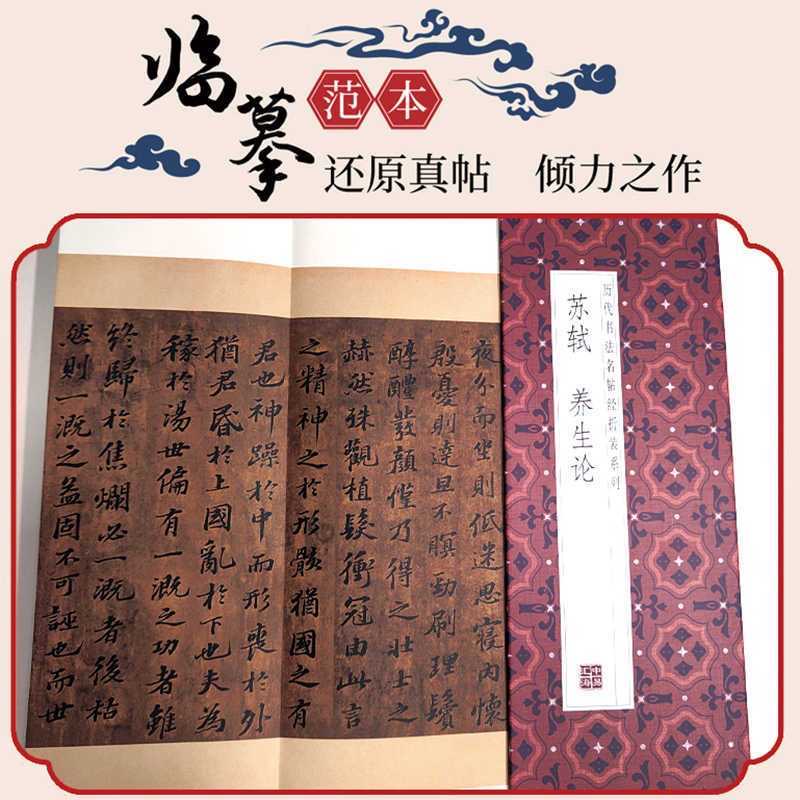 临摹
范本
还原真帖 倾力之作
历代书法名帖经折装系列
苏轼 养生论
夜分而坐則低迷思寝内懷
殷憂則達旦不瞑勁刷理鬢
醇醴發顔僅乃得之壯士之
赫然殊觀植髮衝冠由此言
之精神之於形骸猶國之有
君也神躁於中而形喪於外
猶君昬於上國亂於下也夫為
稼於湯世偏有一溉之功者雖
終歸於焦爛必一溉者後枯
然則一溉之益固不可誣也而世